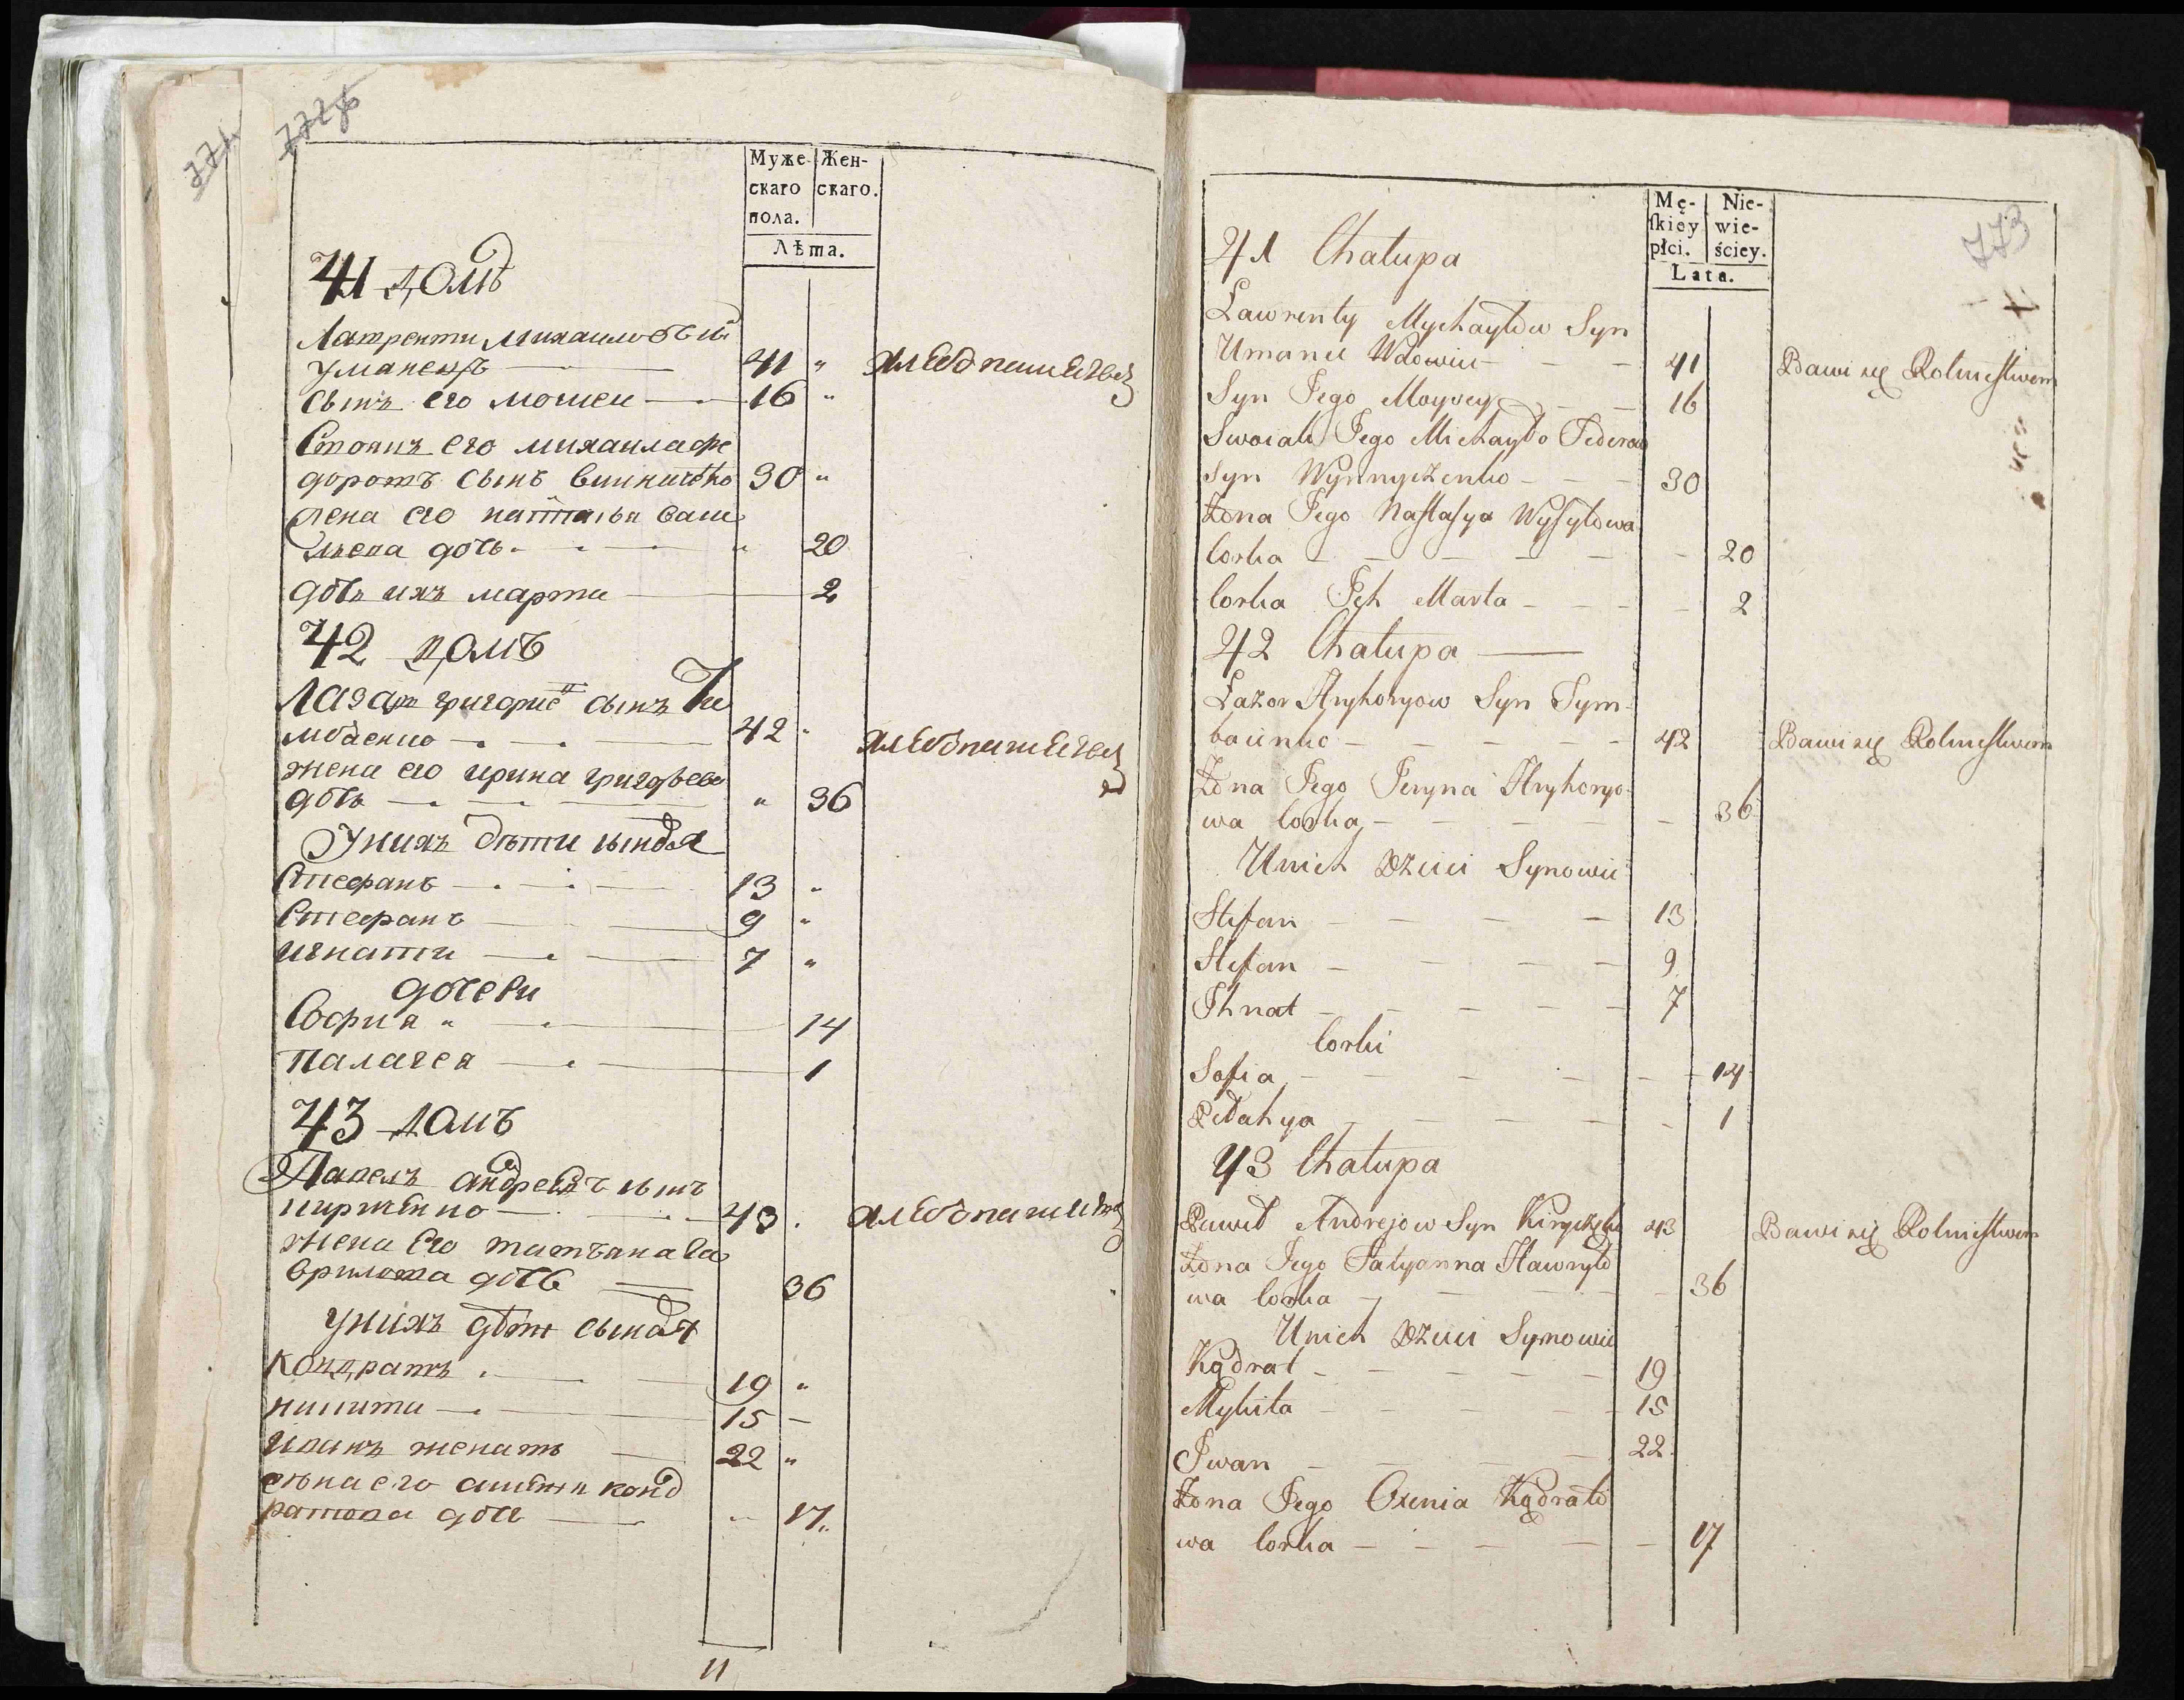 771
772 об
Муже- Жен-
скаго скаго.
пола.
Лѣта.
41 домъ
Лаврентии Михаиловъ сы
Уманецъ 41 „ хлебопашецъ
сынъ его Мошеи 16 „
Своякъ его михаила фе
доровъ сынъ винниченко 30 „
жена его настасья васи
льева дочь „ 20
дочь ихъ марта 2
42 домъ
Лазарь григориевъ сынъ Ти
мбаенко 42 „ хлебопашецъ
жена его ирина григорьева
дочь „ 36
У нихъ дѣти сыновя
Стефанъ 13 „
Стефанъ 9 „
игнати 7 „
дочери
София „ 14
палагея 1
43 домъ
Павелъ андреевъ сынъ
кириченко 43 . хлебопашецъ
жена его татьяна га
врилова дочь 36
у нихъ дѣти сыновя
кондратъ 19 „
никита 15 –
иванъ женатъ 22 „
жена его аксения конд
ратова дочь „ 17„
11
773
Mę- Nie-
ſkiey wie-
płci. ściey.
Lata.
41 Chałupa
Ławrenty Mychayłow Syn
Umanec Wdowiec 41 Bawi się Rolnictwem
Syn Jego Moysey 16
Swoiak Jego Michayło Fedorow
Syn Wynnyczenko 30
Żona Jego Nastasya Wasylowa
Corka 20
Corka Ich Marta 2
42 Chałupa
Łazor Hryhoryow Syn Tym-
baienko 42 Bawi się Rolnictwem
Żona Jego Jeryna Hryhoryo-
wa Corka 36
U nich Dzieci Synowie
Stefan 13
Stefan 9
Ihnat 7
Corki
Sofia 14
Pelahya 1
43 Chałupa
Paweł Andrejow Syn Kiryczenko 43 Bawi się Rolnictwem
Żona Jego Tatyanna Hawryło
wa Corka 36
U nich Dzieci Synowie
Kądrat 19
Mykita 15
Iwan 22
Żona Jego Oxenia Kądrato
wa Corka 17